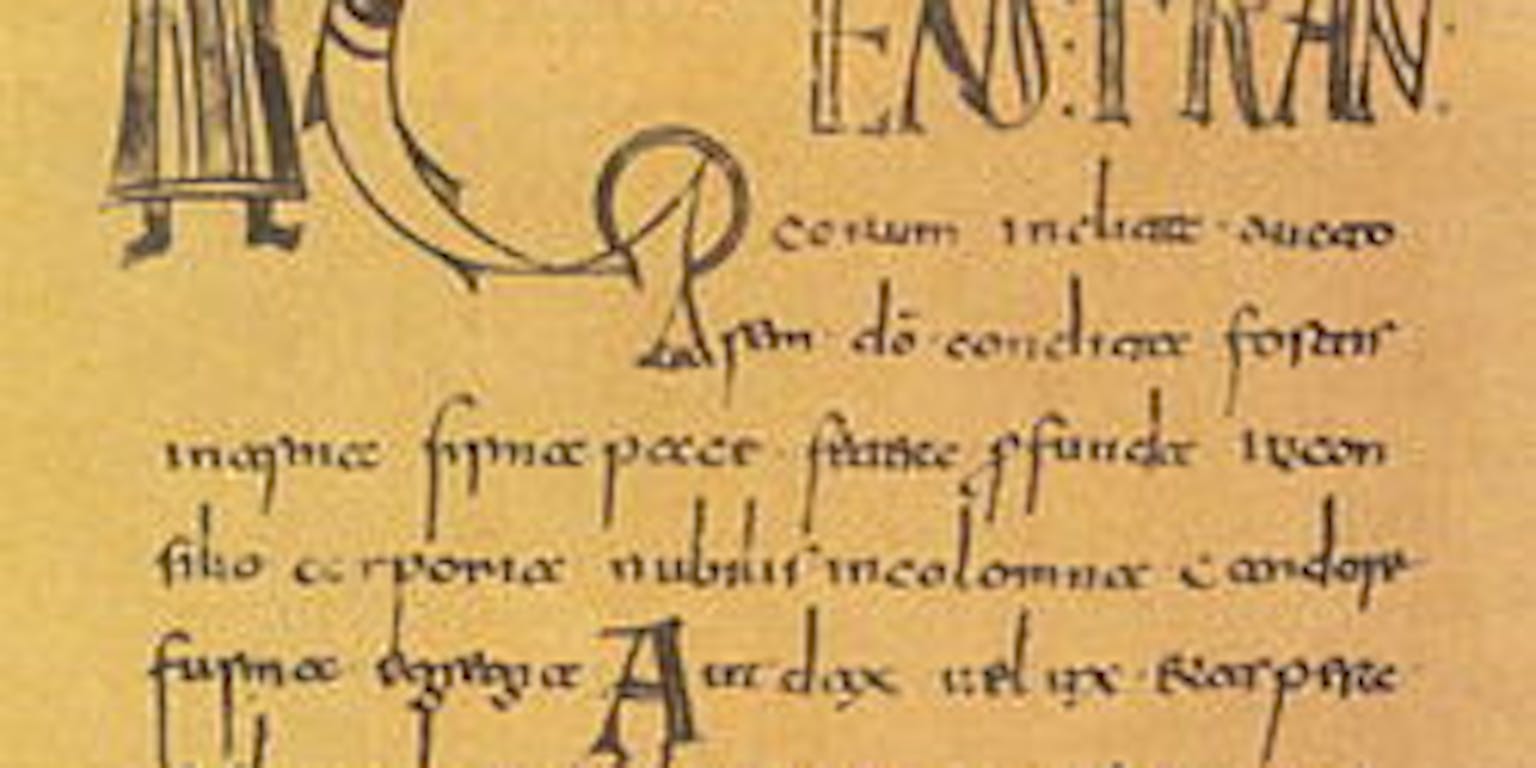 ENS: FRAN
corum inclita aucto
rem dō condita fortis
inarma firma pace fetere pfunda incon
silio corporia nubilis incolomna candore
furma egregia Audax uelux etaspere